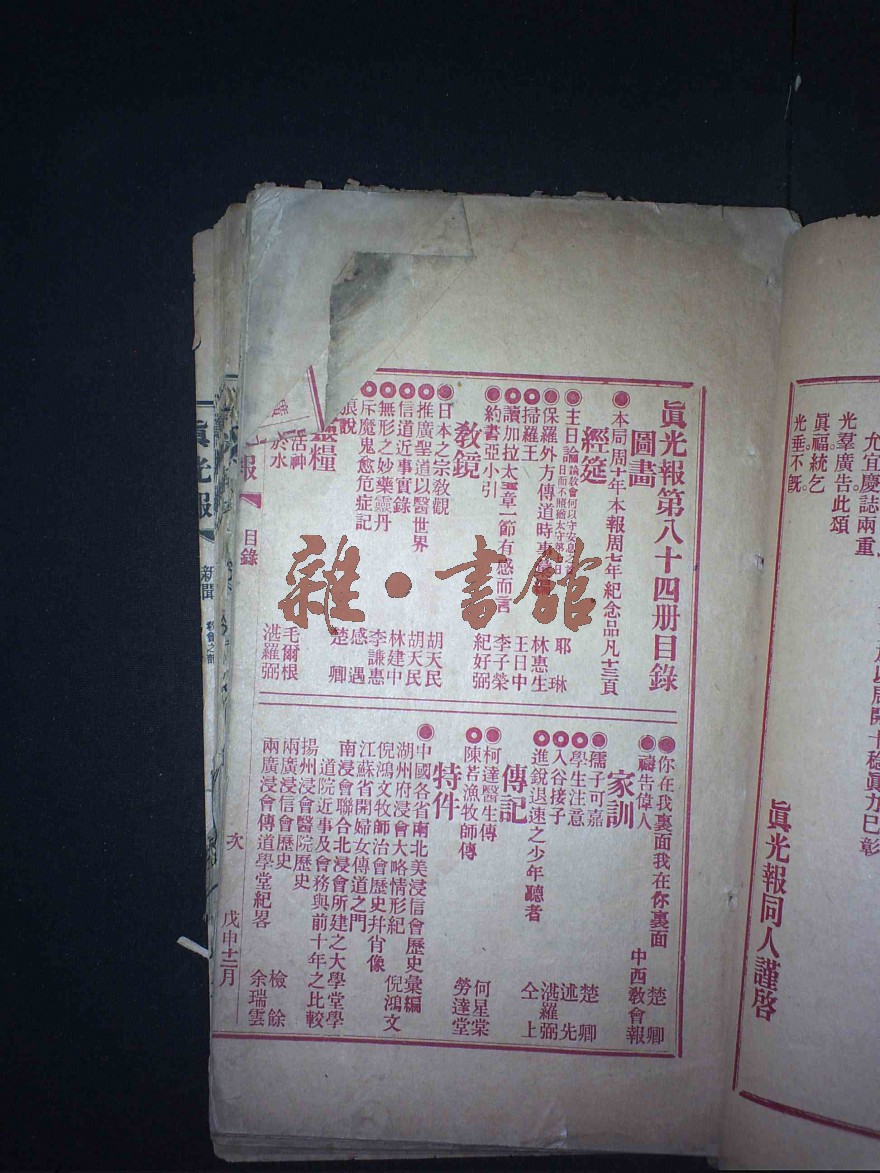 允宜慶誌兩重
光羣廣告此頌
眞福統乞
光垂不旣
眞光報同人謹啓
眞光報第八十四册目錄
圖畫
本局周十年本報周七年紀念品凡十三頁
經筵
主日論 耶琳
保羅外方傳道時事 林惠生
掃羅王 王日中
讀加拉太 章一節有感而言 李子榮
約書亞小引 紀好弼
敎鏡
日本之宗敎觀 胡天民
推廣聖道以醫世界 胡天民
信道近事實錄 林建中
無形之妙藥靈丹 李謙惠
斥魔鬼愈危症記 感遇
說 楚卿
靈糧
活神 毛爾根
水 湛羅弼
你在我裏面我在你裏面 楚卿
禱告偉人 中西敎會報
家訓
孺子可嘉 楚卿
學生注意 述先
入谷接子 湛羅弼
進銳退速之少年聽者 仝上
傳記
柯達醫生傳 何星棠
陳若漁牧師傳 勞達堂
特件
中國各省南北美浸信會歷史彙編
湖州府浸會大略情形紀
倪鴻文牧師治會歷史幷肖像 倪鴻文
江蘇省開婦女傳道之門
南浸會聯合北浸會所建之大學堂學
道院近事及會務與前十年之比較
揚州浸會醫院歷史
兩廣浸信會歷史 檢餘
兩廣浸會傳道學堂紀畧 余瑞雲
報
目錄
次
戊申十二月
眞光報
新聞
雜·書館